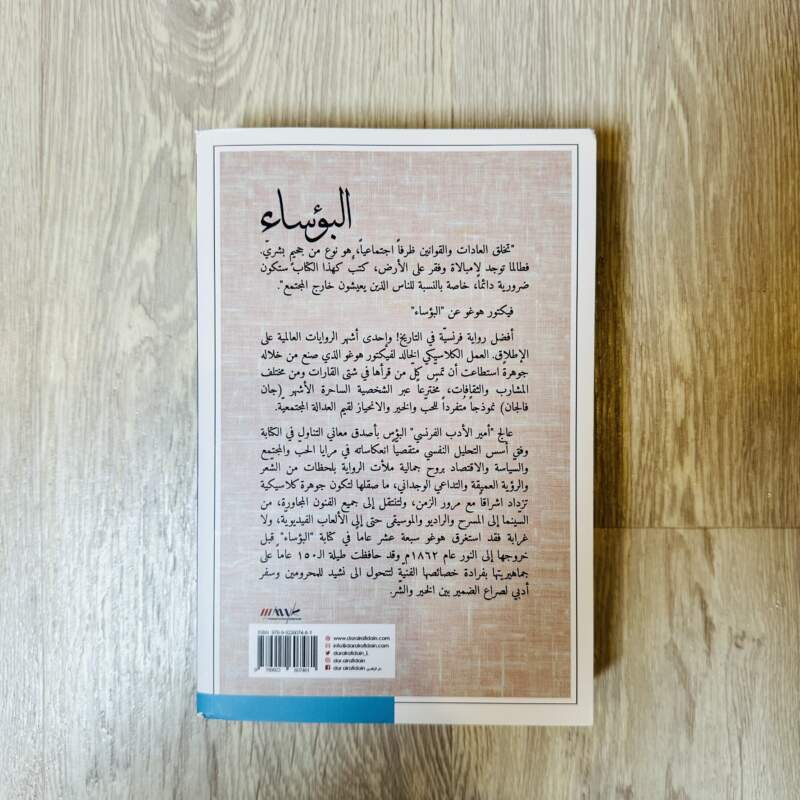 البؤساء
"تخلق العادات والقوانين ظرفاً اجتماعياً، هو نوع من جحيم بشريّ.
فطالما توجد لامبالاة وفقر على الأرض، كتبٌ كهذا الكتاب ستكون
ضرورية دائماً، خاصة بالنسبة للناس الذين يعيشون خارج المجتمع".
فيكتور هوغو عن "البؤساء"
أفضل رواية فرنسيّة في التاريخ! وإحدى أشهر الروايات العالمية على
الإطلاق. العمل الكلاسيكي الخالد لفيكتور هوغو الذي صنع من خلاله
جوهرة استطاعت أن تمسّ كلّ من قرأها في شتى القارات ومن مختلف
المشارب والثقافات، مُخترعاً عبر الشخصية الساحرة الأشهر (جان
فالجان) نموذجاً مُتفرداً للحبّ والخير والانحياز لقيم العدالة المجتمعية.
عالج "أمير الأدب الفرنسي" البؤس بأصدق معاني التناول في الكتابة
وفق أسس التحليل النفسي متقصيّاً انعكاساته في مرايا الحبّ والمجتمع
والسياسة والاقتصاد بروح جمالية ملأت الرواية بلحظات من الشعر
والرؤية العميقة والتداعي الوجداني، ما صقلها لتكون جوهرة كلاسيكية
تزداد اشراقاً مع مرور الزمن، ولتنتقل إلى جميع الفنون المجاورة، من
السينما إلى المسرح والراديو والموسيقى حتى إلى الألعاب الفيديوية، ولا
غرابة فقد استغرق هوغو سبعة عشر عاماً في كتابة "البؤساء" قبل
خروجها إلى النور عام ١٨٦٢م وقد حافظت طيلة الـ١٥٠ عاماً على
جماهيريتها بفرادة خصائصها الفنيّة لتتحول الى نشيد للمحرومين وسفر
أدبي لصراع الضمير بين الخير والشّر.
www.daralrafidain.com
info@daralrafidain.com
daralrafidain_l
dar.alrafidain
dar alrafidain دار الرافدين